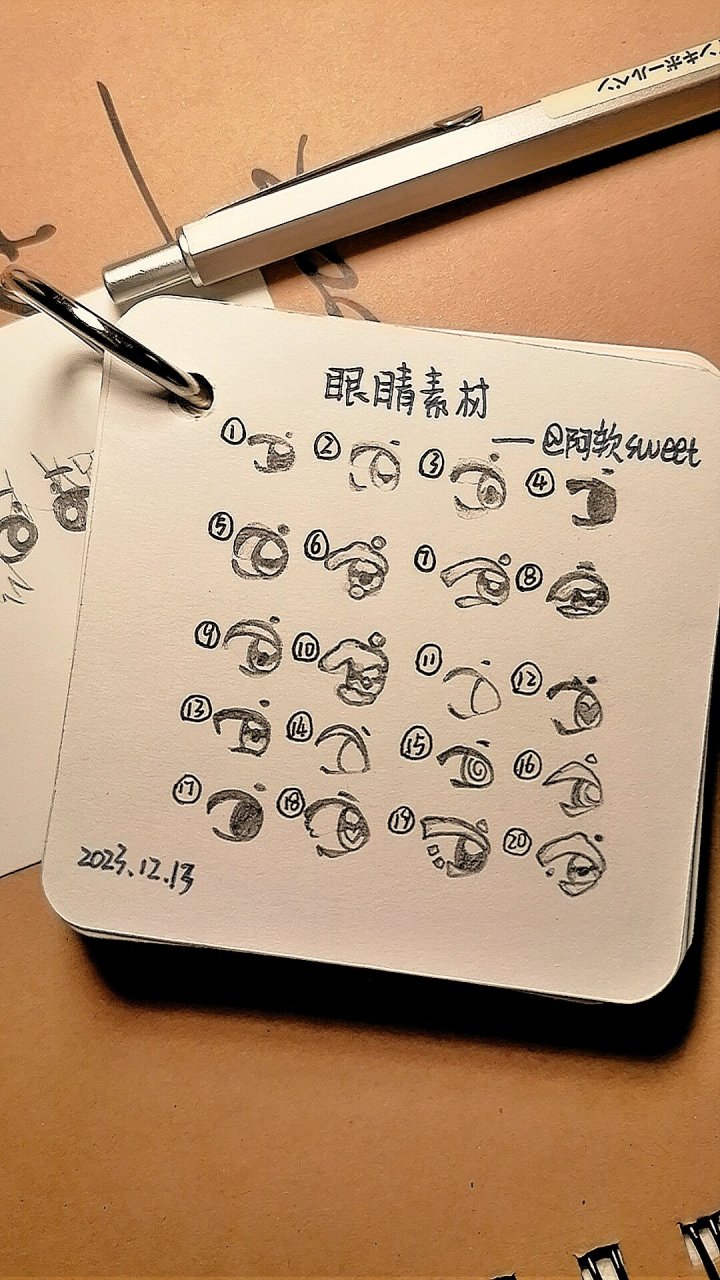 ンキボールペン
眼睛素材
— @阿软sweet
① ② ③ ④
⑤ ⑥ ⑦ ⑧
⑨ ⑩ ⑪ ⑫
⑬ ⑭ ⑮ ⑯
⑰ ⑱ ⑲ ⑳
2023.12.13